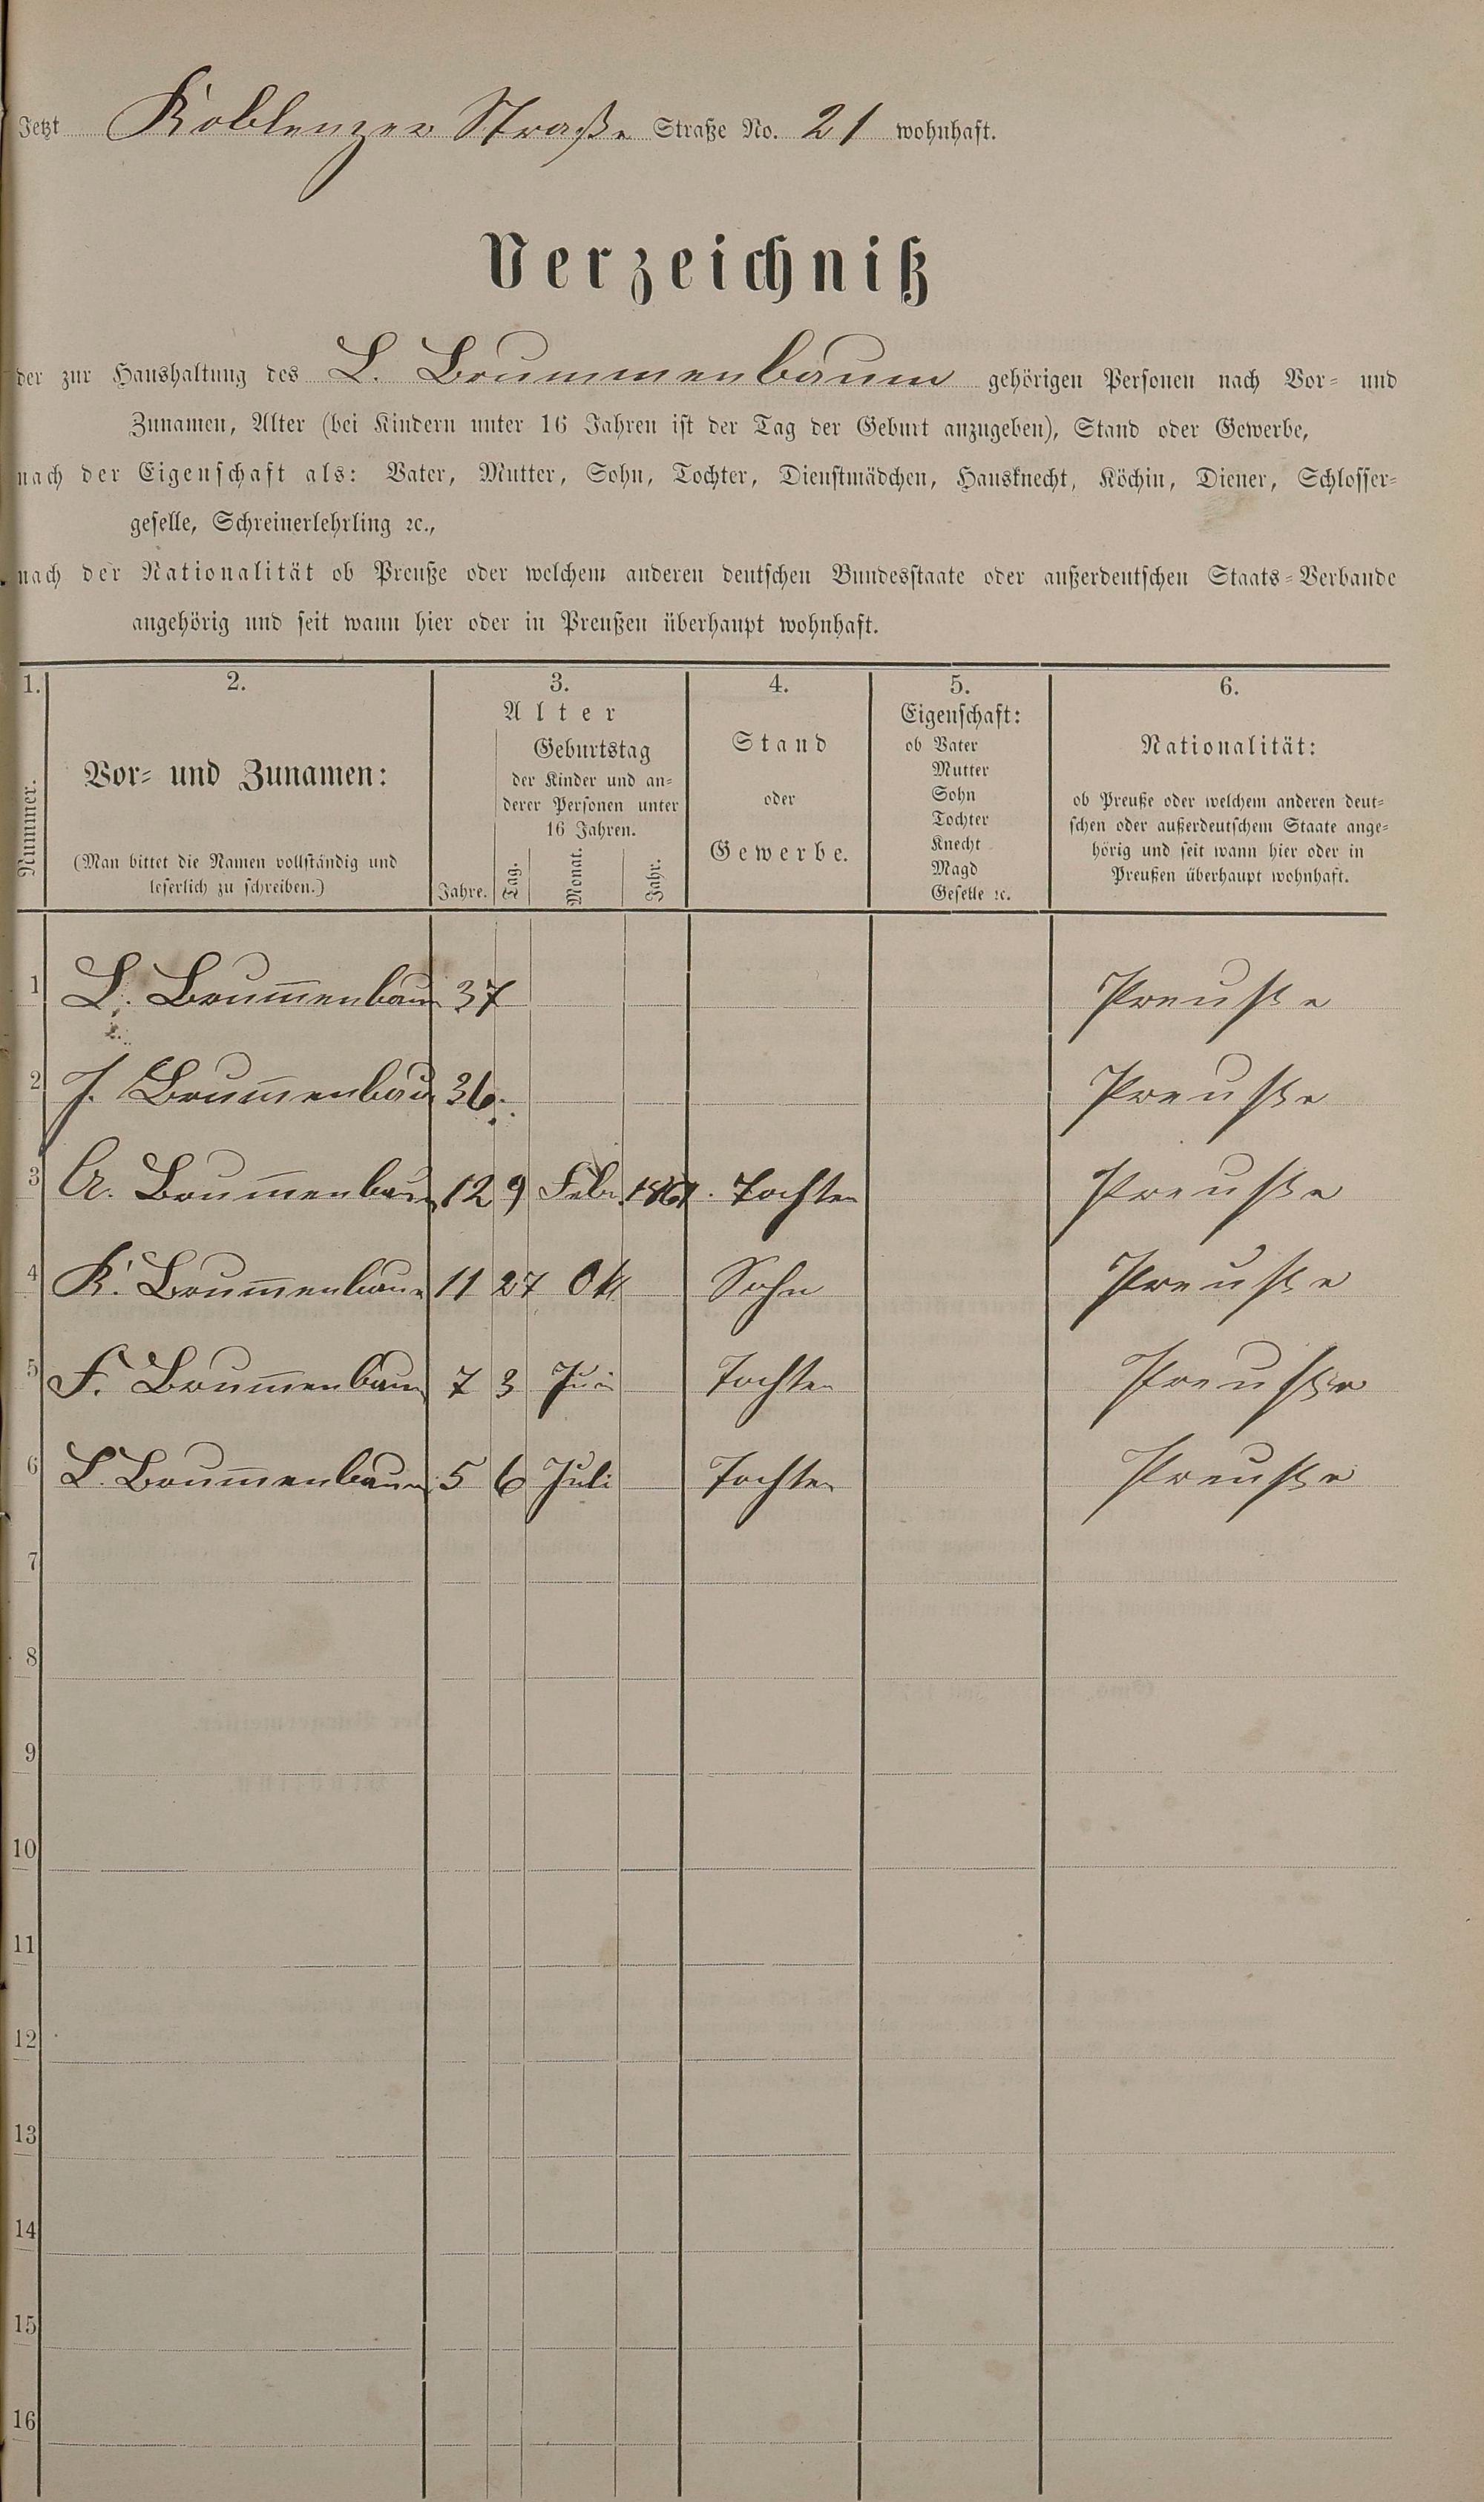 Jetzt Koblenzer Straße Straße No. 21 wohnhaft.
Verzeichniß
der zur Haushaltung des L. Brummenbaum gehörigen Personen nach Vor- und
Zunamen, Alter (bei Kindern unter 16 Jahren ist der Tag der Geburt anzugeben), Stand oder Gewerbe,
nach der Eigenschaft als: Vater, Mutter, Sohn, Tochter, Dienstmädchen, Hausknecht, Köchin, Diener, Schlosser-
geselle, Schreinerlehrling ꝛc.,
nach der Nationalität ob Preuße oder welchem anderen deutschen Bundesstaate oder außerdeutschen Staats-Verbande
angehörig und seit wann hier oder in Preußen überhaupt wohnhaft.
1. 2. 3. 4. 5. 6.
Nummer.
Vor- und Zunamen:
(Man bittet die Namen vollständig und
leserlich zu schreiben.)
Alter
Jahre.
Geburtstag
der Kinder und an-
derer Personen unter
16 Jahren.
Tag. Monat. Jahr.
Stand
oder
Gewerbe.
Eigenschaft:
ob Vater
Mutter
Sohn
Tochter
Knecht
Magd
Geselle ꝛc.
Nationalität:
ob Preuße oder welchem anderen deut-
schen oder außerdeutschem Staate ange-
hörig und seit wann hier oder in
Preußen überhaupt wohnhaft.
1 L. Brum̅enbaum 37 Preuße
2 J. Brum̅enbau 36. Preuße
3 A. Brum̅enbaum 12 9 Febr. Tochter Preuße
4 K. Brum̅enbaum 11 27 Okt Sohn Preuße
5 F. Brum̅enbaum 7 3 Tochter Preuße
6 L. Brum̅enbaum 5 6 Juli Tochter Preuße
7
8
9
10
11
12
13
14
15
16